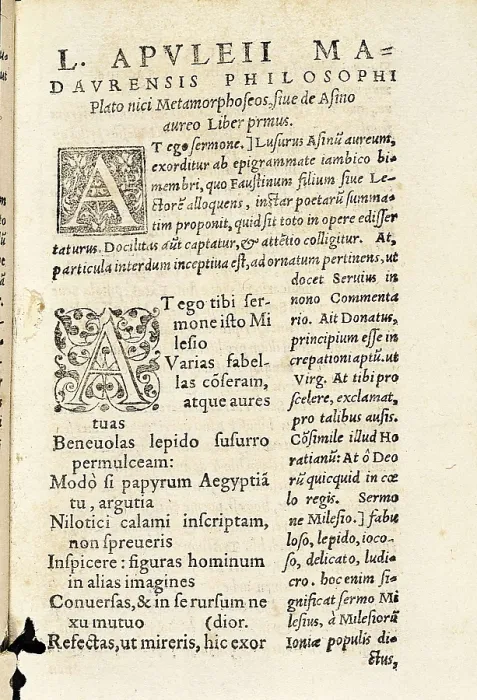 L. APVLEII MA=
DAVRENSIS PHILOSOPHI
Plato nici Metamorphoseos, siue de Asino
aureo Liber prmus.
AT ego sermone.] Lusurus Asinũ aureum,
exorditur ab epigrammate iambico bi-
membri, quo Faustinum filium siue Le-
ctorẽ alloquens, instar poetarũ summa-
tim proponit, quid sit toto in opere edisser
taturus. Docilitas aũt captatur, & attẽtio colligitur. At,
particula interdum inceptiua est, ad ornatum pertinens, ut
docet Seruius in
nono Commenta
rio. Ait Donatus,
principium esse in
crepationi aptũ. ut
Virg. At tibi pro
scelere, exclamat,
pro talibus ausis.
Cõsimile illud Ho
ratianũ: At ô Deo
rũ quicquid in cœ
lo regis. Sermo
ne Milesio.] fabu
loso, lepido, ioco-
so, delicato, ludi-
cro. hoc enim si-
gnificat sermo Mi
lesius, à Milesiorũ
Ioniæ populis di-
ctus,
AT ego tibi ser-
mone isto Mi
lesio
Varias fabel-
las cõseram,
atque aures
tuas
Beneuolas lepido susurro
permulceam:
Modò si papyrum Aegyptiã
tu, argutia
Nilotici calami inscriptam,
non spreueris
Inspicere: figuras hominum
in alias imagines
Conuersas, & in se rursum ne
xu mutuo (dior.
Refectas, ut mireris, hic exor